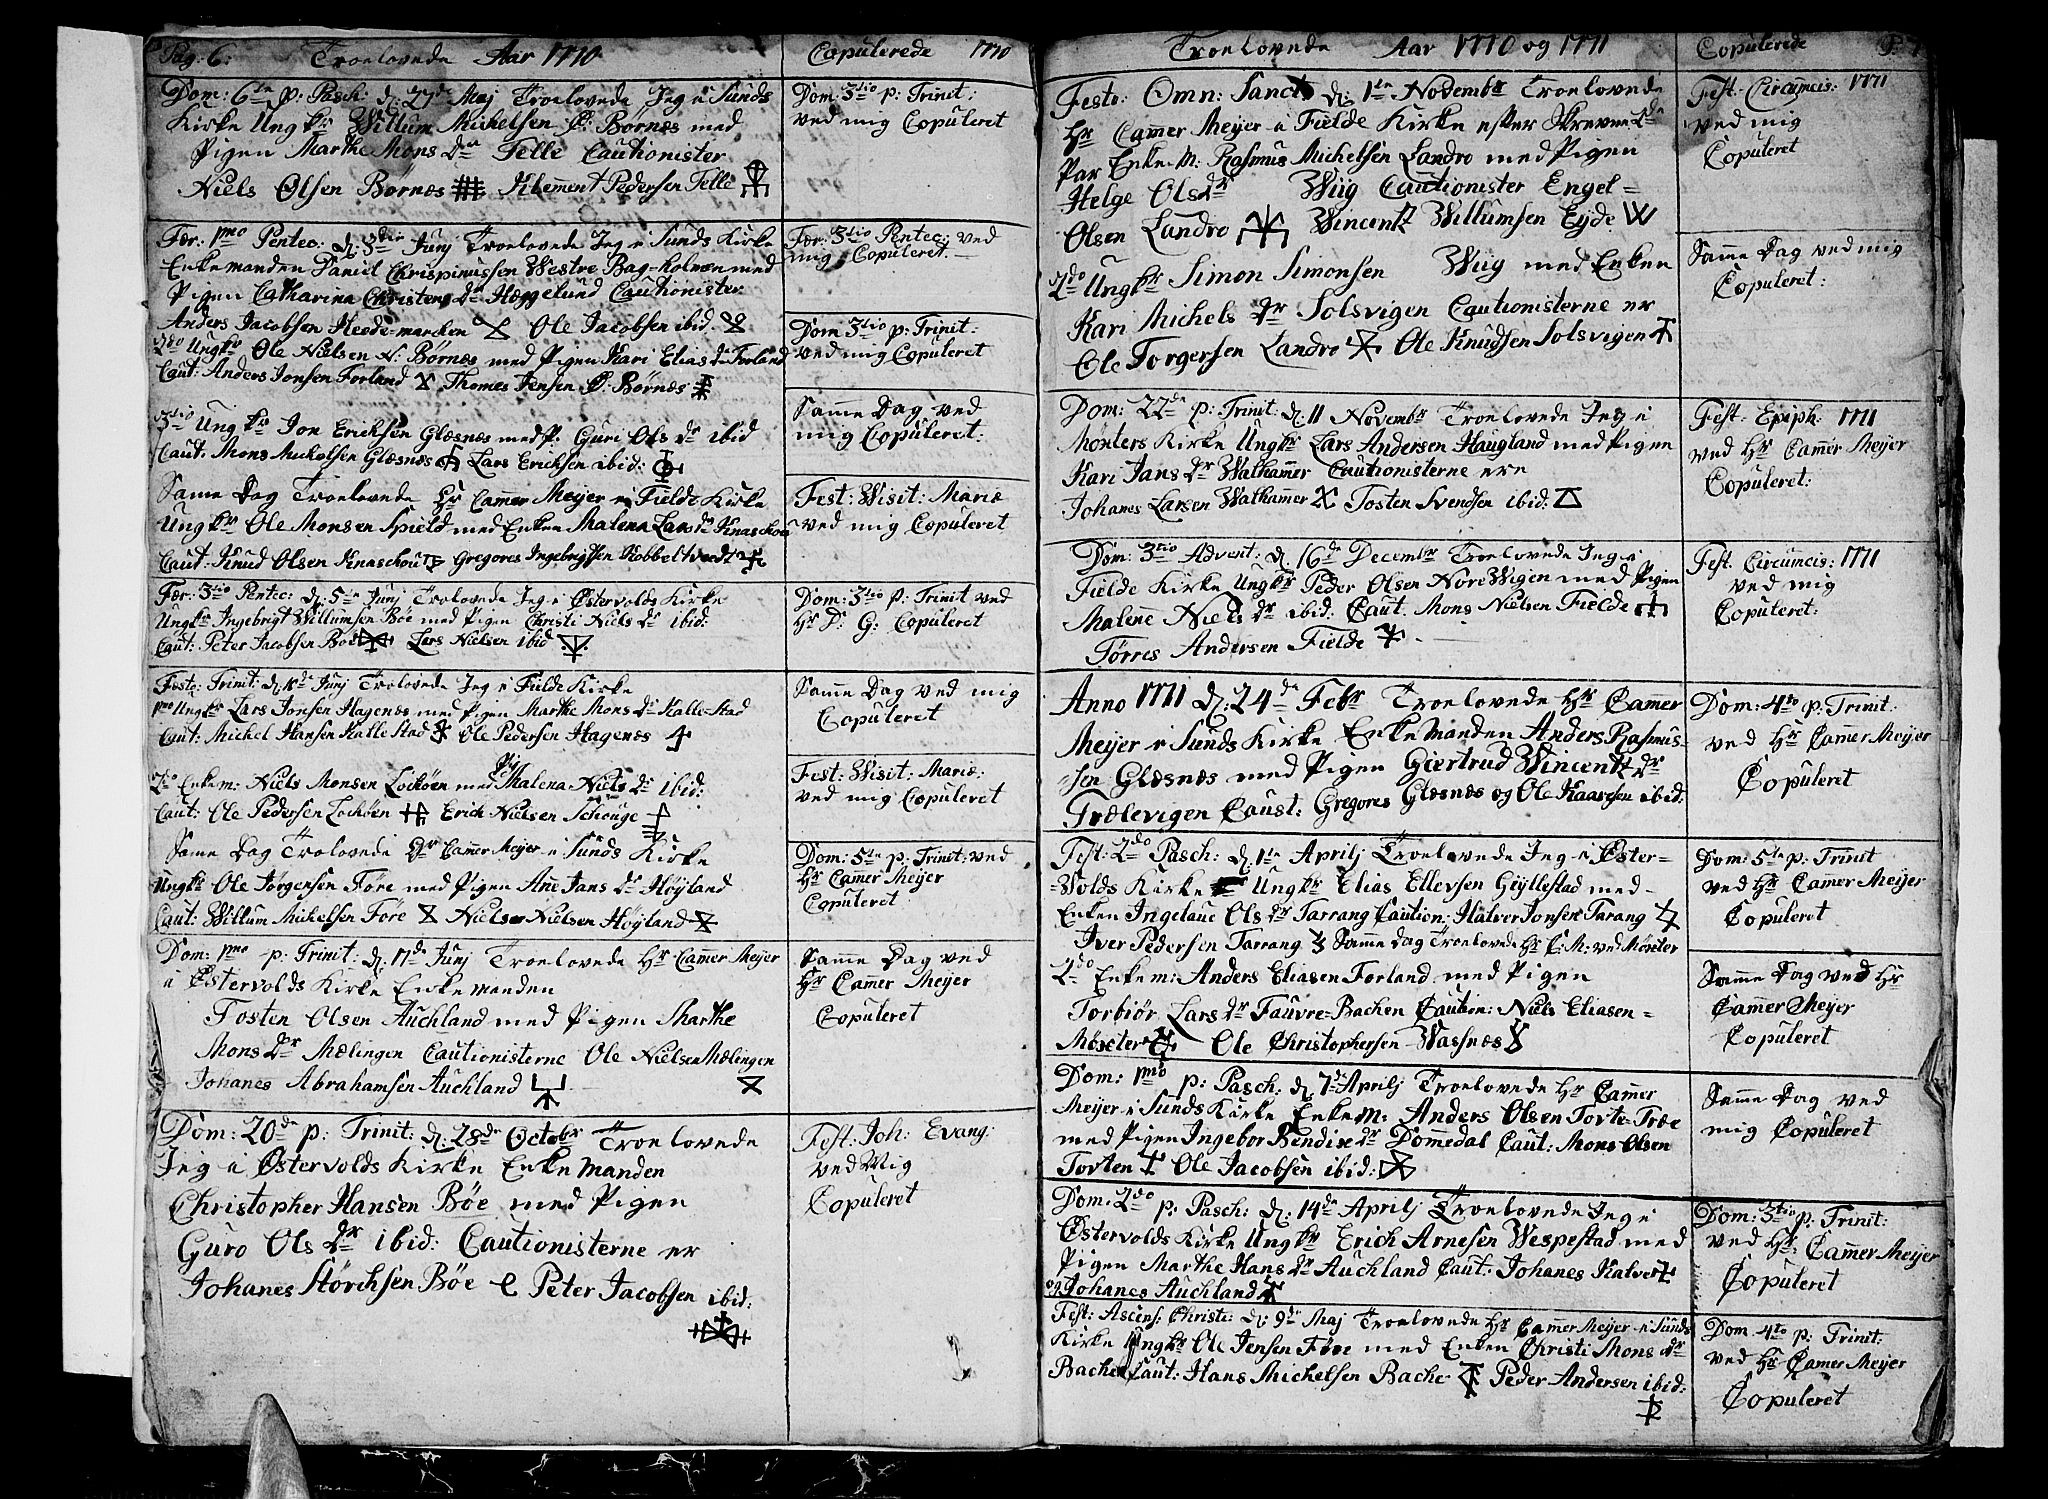 Pag: 6: Troelovede Aar 1770
Copulerede 1770
Dom: 6te p: Pasch: d. 27de Maj Troelovede Jeg i Sunds
Kirke Ungkr Willum Michelsen Ø: Børnæs med
Pigen Marthe Mons dr Telle Cautionister
Niels Olsen Børnæs Klement Pedersen Telle
Dom: 3tio p: Trinit:
ved mig Copuleret
Fær: pmo Pentec: d. 3die Junj Troelovede Jeg i Sunds Kirke
Enkemanden Daniel Chrispinussen Westre Bag-holmen med
Pigen Catharina Christens dr Hæggelund Cautionister
Anders Jacobsen Heede-marcken Ole Jacobsen ibid.
Fær: 3tio Pentec: ved
mig Copuleret.
2do Ungkr Ole Nielsen N: Børnæs med Pigen Kari Elias dr Forland
Caut: Anders Jonsen Forland Thomes Jensen Ø: Børnæs
Dom 3tio p: Trinit:
ved mig Copuleret
3tio Ung kr Jon Ericksen Glæsnæs med P: Guri Ols dr ibid
Caut: Mons Mickelsen Glæsnæs Lars Ericksen ibid:
Samme Dag ved
mig Copuleret:
Same Dag Troelovede Hr Camer Meyer i Fielde Kirke
Ungkr Ole Monsen Spield med Enken Malena Lars dr Knaschou
Caut: Knud Olsen Knaschou Gregores Ingebrigtsen Kobbeltvedt
Fest: Wisit: Mariæ
ved mig Copuleret
Fær: 3tio Pentec: d. 5te Junj Trolovede Jeg i Østervolds Kirke
Ungkr Ingebrigt Willumsen Bøe med Pigen Christi Niels dr ibid:
Caut: Peter Jacobsen Boe Lars Nielsen ibid
Dom: 3tio p: Trinit ved
Hr P: G: Copuleret
Festo: Trinit: d. Junj Troelovede Jeg i Fielde Kirke
pmo Ungkr Lars Jonsen Hagenæs med Pigen Marthe Mons dr Kalle-stad
Caut: Michel Hansen Kallestad Ole Pedersen Hagenæs
Samme Dag ved mig
Copuleret
2do Enkem: Niels Monsen Lockøen med Malena Niels dr ibid:
Caut: Ole Pedersen Lockøen Erich Nielsen Schouge
Fest: Wisit: Mariæ:
ved mig Copuleret
Same Dag Trolovede Hr Camer Meyer i Sunds Kirke
Ungkr Ole Jørgensen Føre med Pigen Ane Jans dr Høyland
Caut: Willum Michelsen Føre Niels Nielsen Høyland
Dom: 5te p: Trinit: ved
Hr Camer Meyer
Copuleret
Dom: pmo p: Trinit: d. 17de Junj Troelovede Hr Camer Meyer
i Østervolds Kirke Enkemanden
Tosten Olsen Auchland med Pigen Marthe
Mons dr Mælingen Cautionisterne Ole Nielsen Mælingen
Johanes Abrahamsen Auchland
Samme Dag ved
Hr Camer Meyer
Copuleret
Dom: 20de p: Trinit: d. 28de Octobr Troelovede
Jeg i Østervolds Kirke Enkemanden
Christopher Hansen Bøe med Pigen
Guro Ols dr ibid: Cautionisterne er
Johanes Størchsen Bøe & Peter Jacobsen ibid:
Fest: Joh: Evang:
ved Mig
Copuleret
Troelovede Aar 1770 og 1771
Copulerede P: 7
Festo: Omn: Sanct d: 1te Novembr Troelovede
Hr Camer Meyer i Fielde Kirke efter skrevne 2de
Par Enke-M: Rasmus Michelsen Landro med Pigen
Helge Olsdr Wiig Cautionister Engel=
Olsen Landro Wincentz Willumsen Eyde
Fest. Circumcis: 1771
ved mig
Copuleret
2do Ungkr Simon Simonsen Wiig med Enken
Kari Michels dr Solsvigen Cautionisterne er
Ole Torgersen Landro Ole Knudsen Solsvigen
Samme Dag ved mig
Copuleret:
Dom: 22de p: Trinit: d. 11 Novembr Troelovede Jeg i
Møxters Kirke Ungkr Lars Andersen Haugland med Pigen
Kari Jans dr Walhamer Cautionisterne ere
Johanes Larsen Walhamer Tosten Svendsen ibid:
Fest. Epiph: 1771
ved Hr Camer Meyer
Copuleret:
Dom: 3tio Advent: d. 16de Decembr Troelovede Jeg i
Fielde Kirke Ungkr Peder Olsen Nore Wigen med Pigen
Malene Niels dr ibid: Caut. Mons Nielsen Fielde
Tørres Andersen Fielde
Fest. Circumcis: 1771
ved mig
Copuleret:
Anno 1771 d. 24de Febr Troelovede Hr Camer
Meyer i Sunds Kirke Enkemanden Anders Rasmus-
sen Glæsnæs med Pigen Giertrud Wincentz dr
Trælevigen Caust: Gregores Glæsnæs og Ole Kaaresen ibid:
Dom: 4to p: Trinit:
ved Hr Camer Meyer
Copuleret
Fest: 2do Pasch: d. 1te Aprilj Troelovede Jeg i Øster=
=Wolds Kirke Ungkr Elias Ellevsen Geyllestad med
Enken Ingelauc Ols dr Tarrang Caution: Halver Jonsen Tarang
Iver Pedersen Tarrang Samme dag Troelovede Hr C: M: ved Møxter
Dom: 5te p: Trinit
ved Hr Camer Meyer
Copuleret
2do Enkem: Anders Eliasen Forland med Pigen
Torbiør Lars dr Fauvre=Bachen Caution: Niels Eliasen=
Møxter Ole Christophersen Wassnæs
Samme Dag ved Hr
Camer Meyer
Copuleret
Dom: pmo p: Pasch: d. 7de Aprilj Troelovede Hr Camer
Meyer i Sunds Kirke Enkem: Anders Olsen Torte-Træe
med Pigen Ingebor Bendixe dr Domedal Caut: Mons Olsen
Torten Ole Jacobsen ibid:
Samme Dag ved
mig Copuleret
Dom: 2do p: Pasch: d: 14de Aprilj Troelovede Jeg i
Østervolds Kirke Ungkr Erich Arnesen Wespestad med
Pigen Marthe Hans dr Auchland Caut: Johanes Kalve
og Johanes Auchland
Dom: 3tio p: Trinit:
ved Hr. Camer Meyer
Copuleret
Fest: Ascens: Christi: d: 9de Maj Troelovede Hr Camer Meyer i Sunds
Kirke Ungkr Ole Jensen Føre med Enken Christi Mons dr
Bache Caut: Hans Michelsen Bache Peder Andersen ibid:
Dom 4to p: Trinit:
ved Hr Camer Meyer
Copuleret